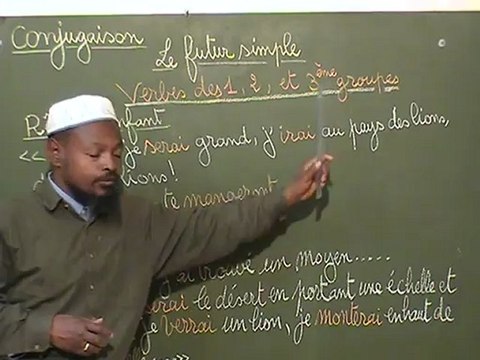 Conjugaison
Le futur simple
Verbes des 1, 2, et 3ème groupes
enfant
<< je serai grand, j'irai au pays des lions,
lions !
te mangeront
trouvé un moyen.....
le désert en portant une échelle et
je verrai un lion, je monterai en haut de